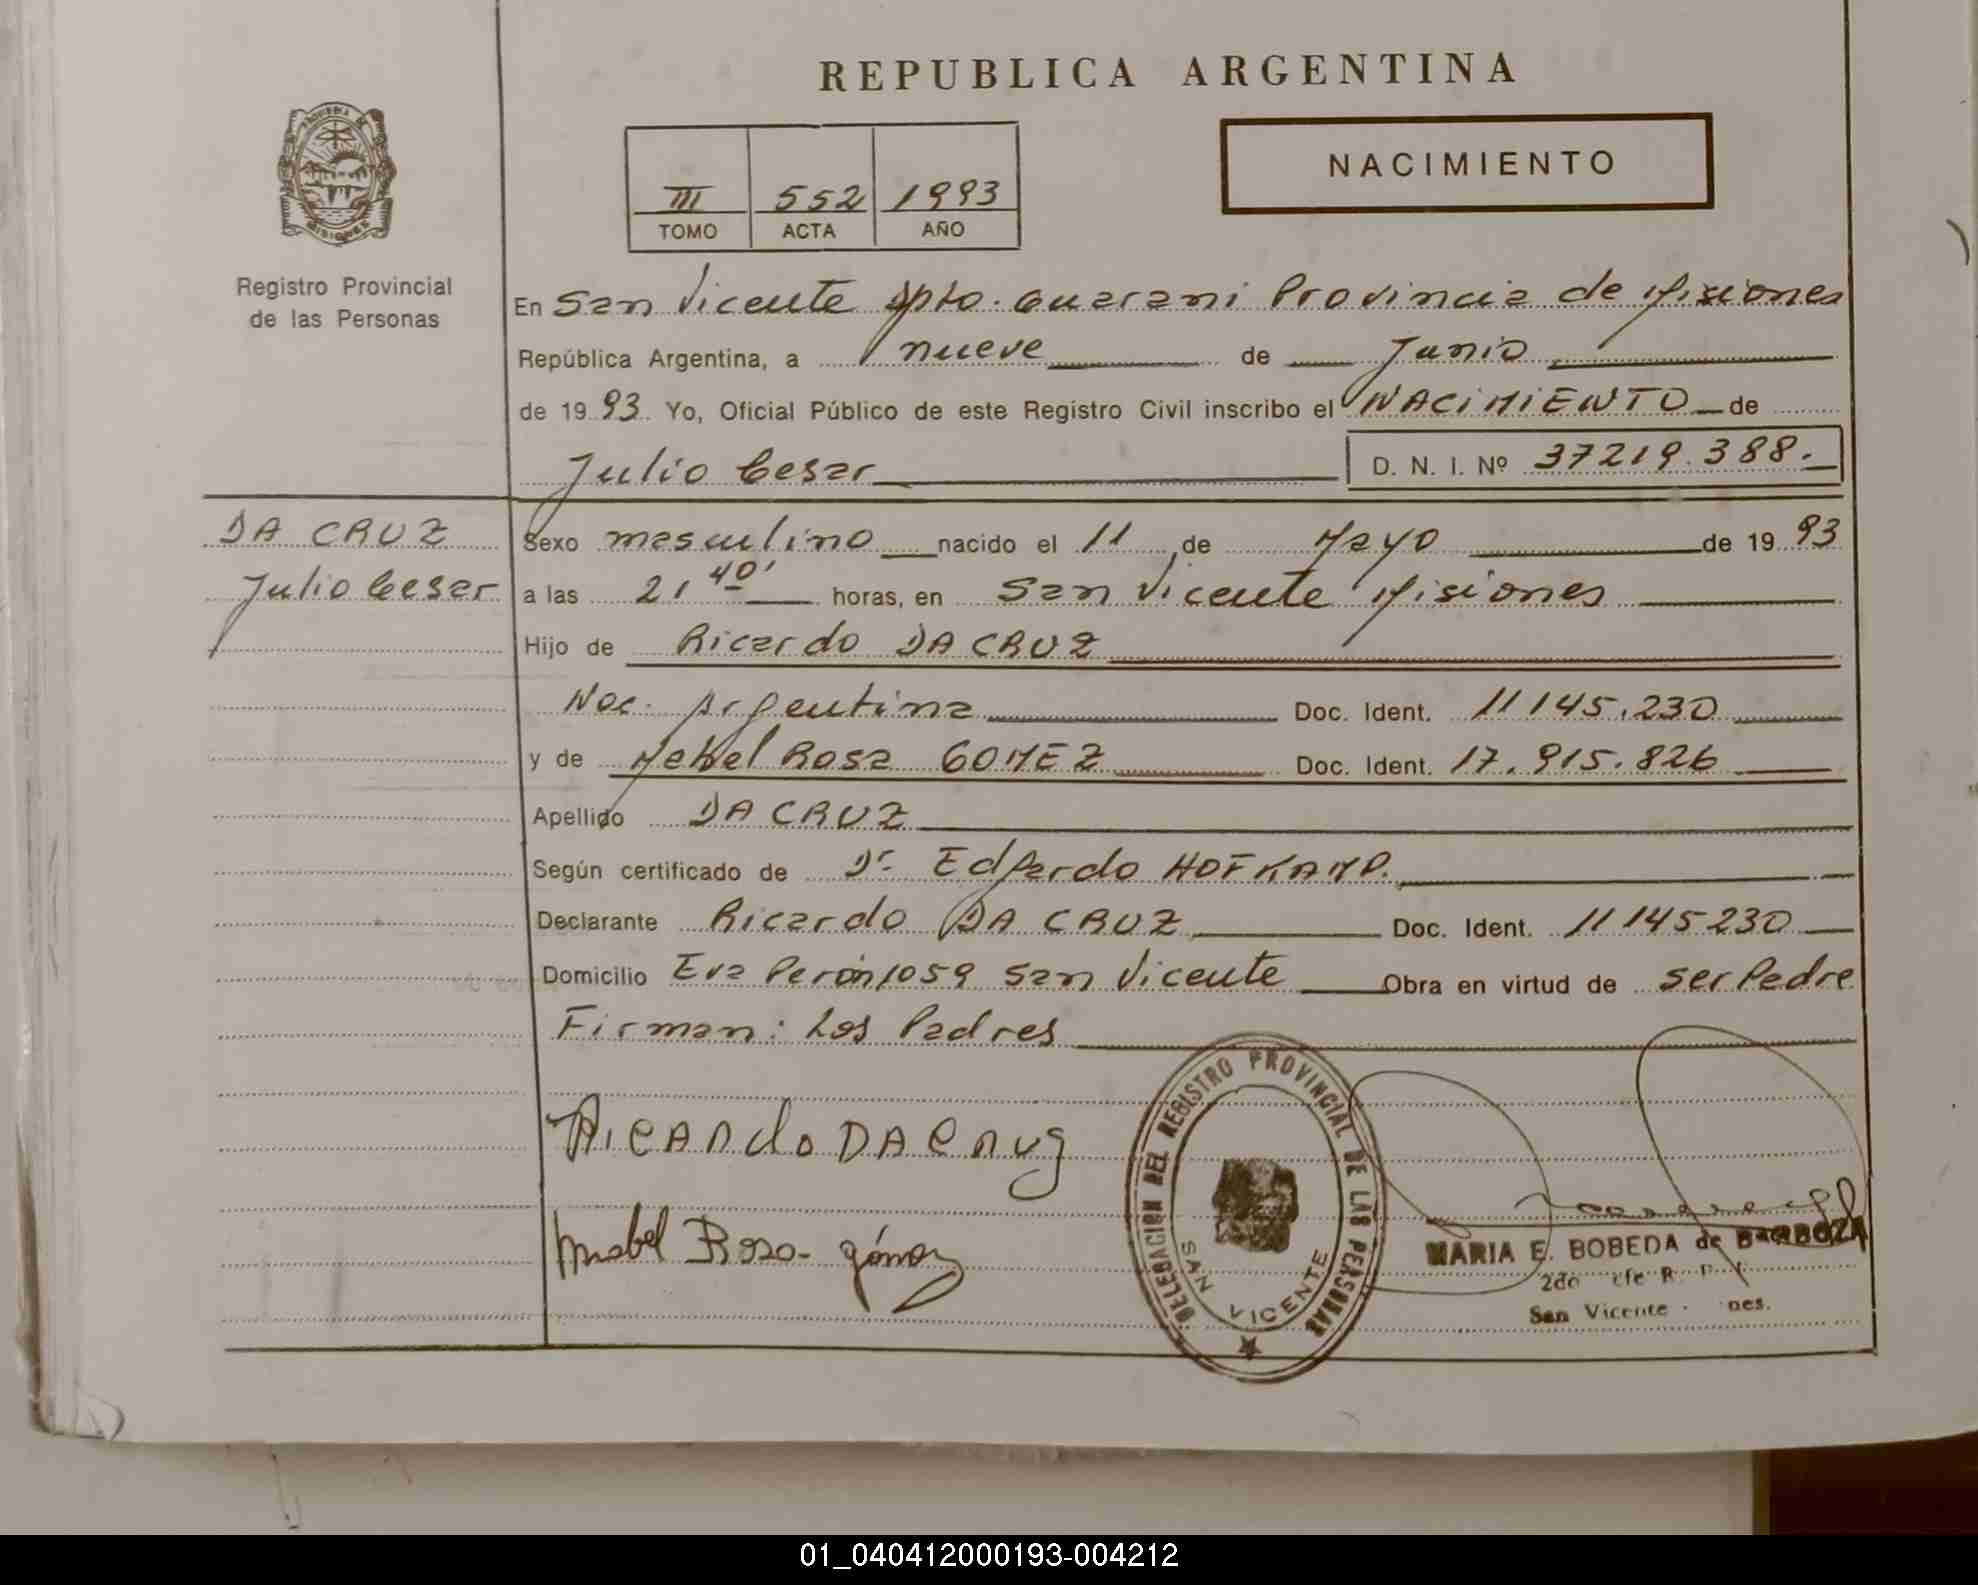 REPUBLICA ARGENTINA
NACIMIENTO
III 552 1993
TOMO ACTA AÑO
Registro Provincial
de las Personas
En San Vicente Dpto. Guarani Provincia de Misiones
República Argentina, a nueve de Junio
de 1993 Yo, Oficial Público de este Registro Civil inscribo el NACIMIENTO de
Julio Cesar D. N. I. Nº 37219.388.
DA CRUZ
Julio Cesar
Sexo masculino nacido el 11 de Mayo de 1993
a las 21 40' horas, en San Vicente Misiones
Hijo de Ricardo DA CRUZ
Nac. Argentina Doc. Ident. 11145.230
y de Mabel Rosa GOMEZ Doc. Ident. 17.915.826
Apellido DA CRUZ
Según certificado de Dr. Edgardo HOFKAMP.
Declarante Ricardo DA CRUZ Doc. Ident. 11145230
Domicilio Eva Perón 1059 San Vicente Obra en virtud de ser Padre
Firman: Los Padres
Ricardo DA Cruz
Mabel Rosa Gómez
DELEGACION DEL REGISTRO PROVINCIAL DE LAS PERSONAS
SAN VICENTE
MARIA E. BOBEDA de BARBOZA
2do
San Vicente
01_040412000193-004212